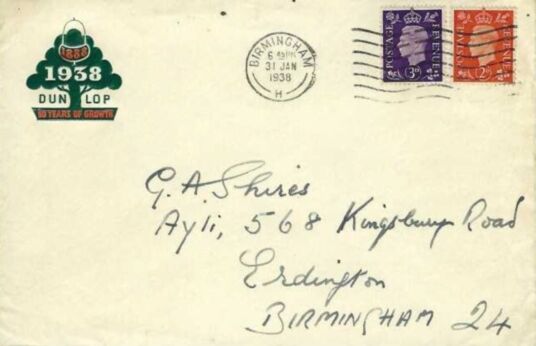 1888
1938
DUNLOP
50 YEARS OF GROWTH
BIRMINGHAM
6 45 PM
31 JAN
1938
H
POSTAGE REVENUE
3D
POSTAGE REVENUE
2D
G. A. Shires
Ayli, 568 Kingsbury Road
Erdington
BIRMINGHAM 24